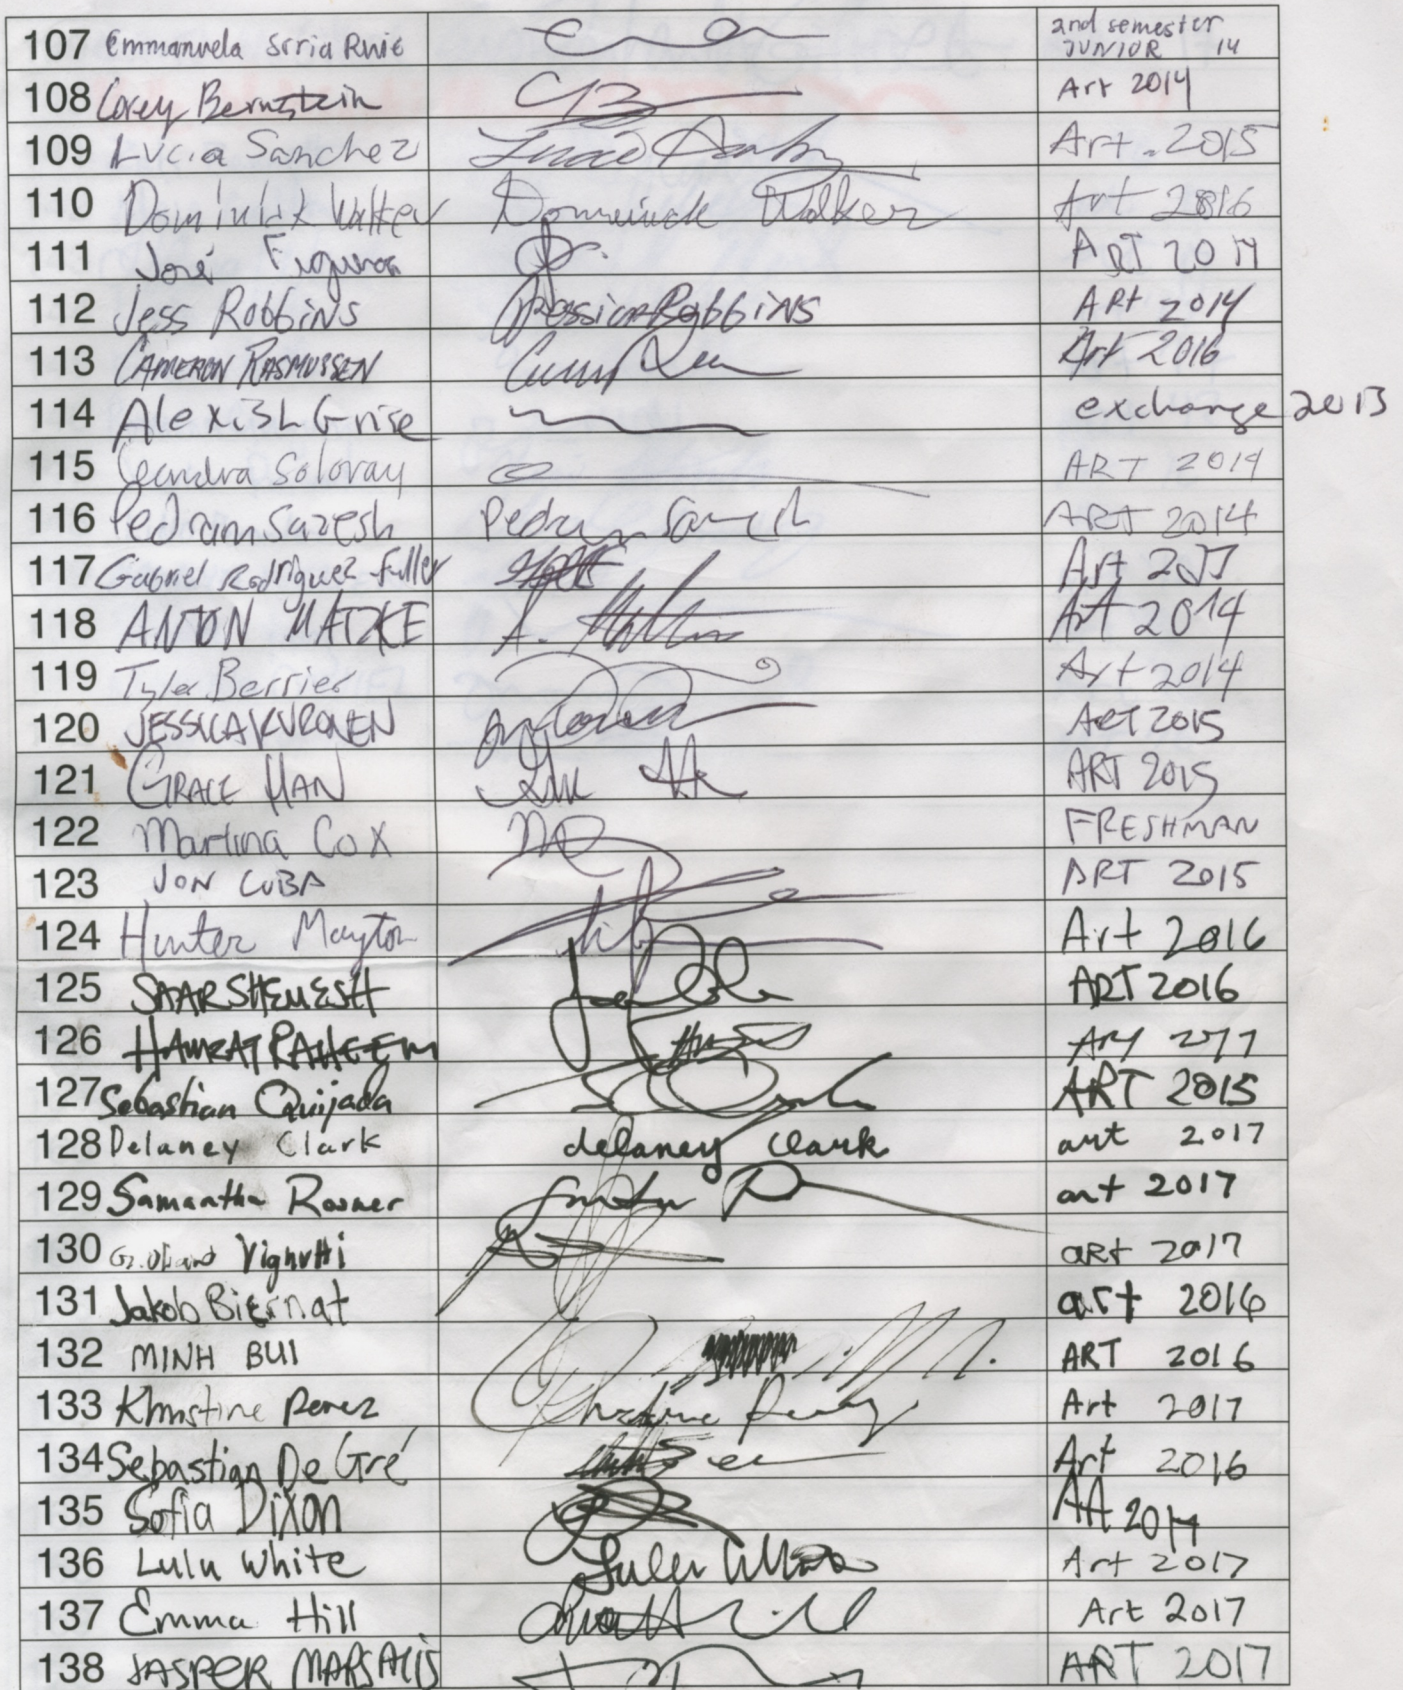 107 Emmanuela Soria Ruiz 2nd semester
JUNIOR 14
108 Corey Bernstein Art 2014
109 Lucia Sanchez Art. 2015
110 Dominick Walker Dominick Walker Art 2016
111 José Figueroa ART 2014
112 Jess Robbins Jessica Robbins ART 2014
113 CAMERON RASMUSSEN Art 2016
114 exchange 2013
115 ART 2014
116 Pedram Sazesh Pedram ART 2014
117 Gabriel Rodriguez-Fuller Art
118 ANTON MATZKE A. Art 2014
119 Tyler Berrier Art 2014
120 JESSICA KURONEN ART 2015
121 GRACE HAN ART 2015
122 Martina Cox FRESHMAN
123 JON CUBA ART 2015
124 Hunter Mayton Art 2016
125 SAAR SHEMESH ART 2016
126 HAMZAT RAHEEM
127 Sebastian Quijada ART 2015
128 Delaney Clark delaney clark art 2017
129 Samantha Rosner art 2017
130 Vignutti art 2017
131 Jakob Biernat art 2016
132 MINH BUI ART 2016
133 Khristine Perez Art 2017
134 Sebastian De Gré Art 2016
135 Sofia Dixon
136 Lulu White Lulu White Art 2017
137 Emma Hill Art 2017
138 JASPER MARSALIS ART 2017